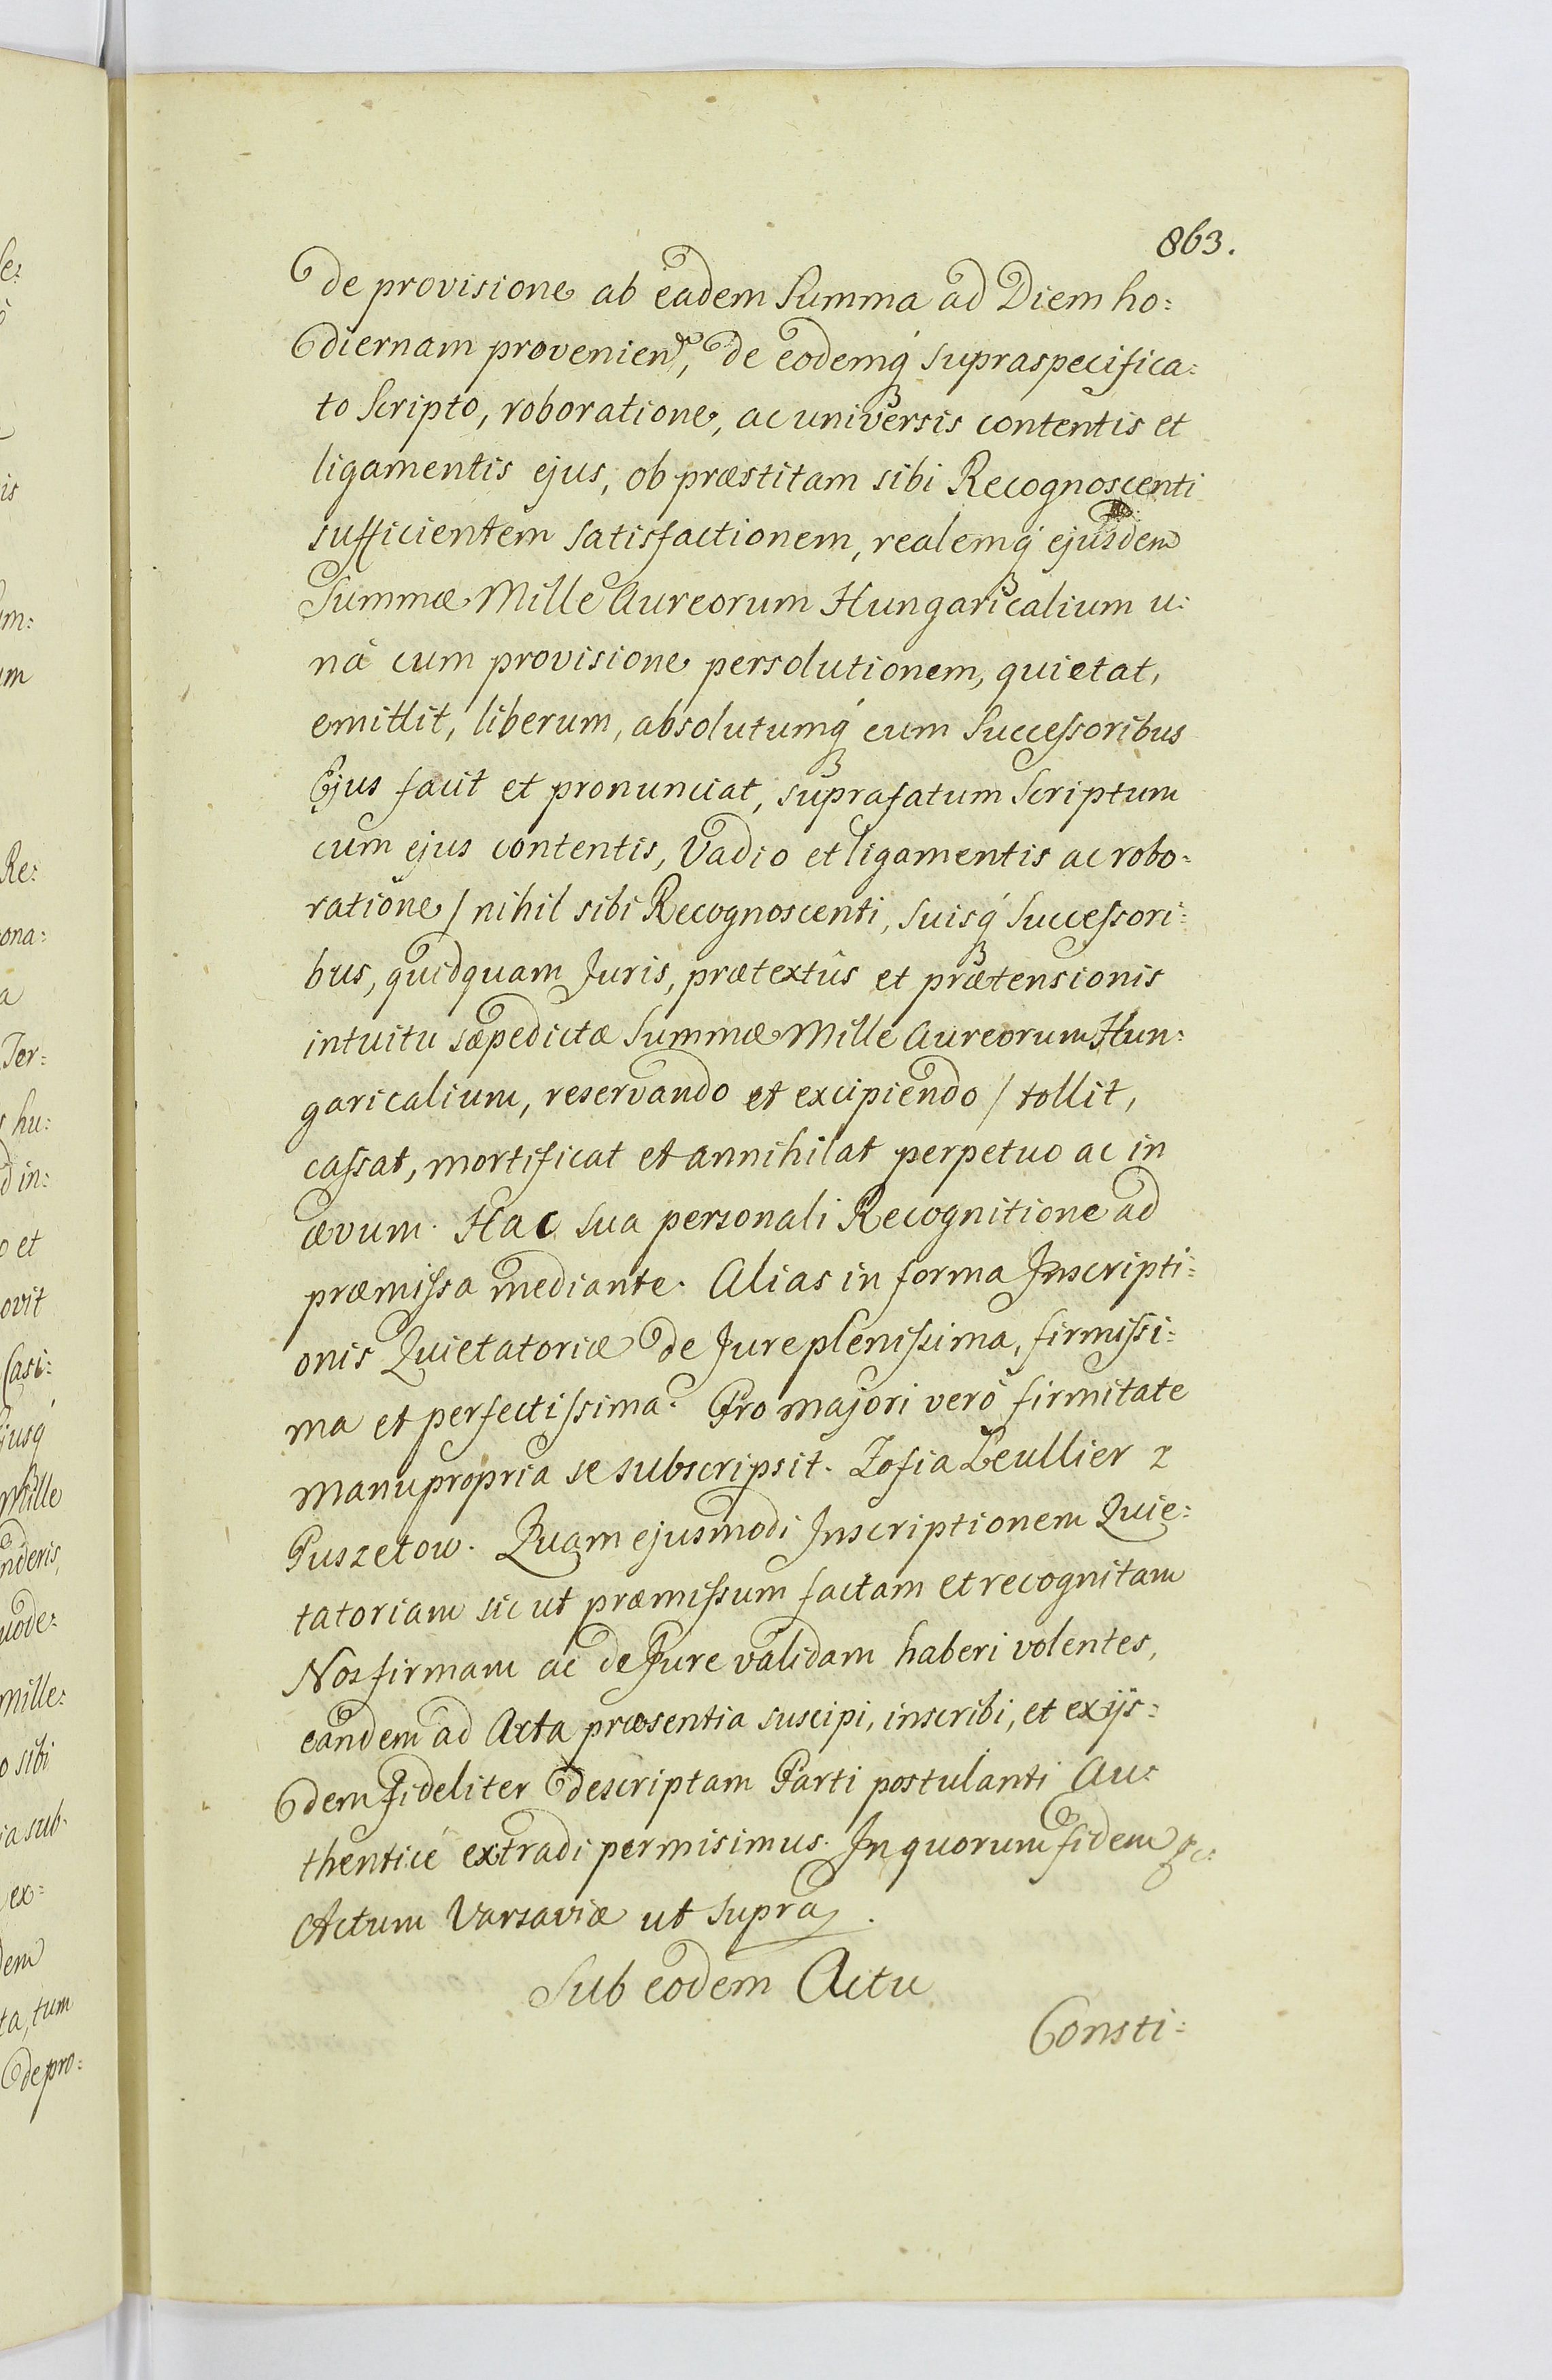 863.
de provisione ab eadem Summa ad Diem ho:
diernam provenien, de eodemq́ supraspecifica:
to Scripto, roboratione, ac universis contentis et
ligamentis ejus, ob præstitam sibi Recognoscenti
sufficientem satisfactionem, realemq́ ejusdem
Summæ Mille Aureorum Hungaricalium u:
nà cum provisione persolutionem, quietat,
emittit, liberum, absolutumq́ cum Successoribus
Ejus facit et pronunciat, suprafatum Scriptum
cum ejus contentis, Vadio et ligamentis ac robo:
ratione / nihil sibi Recognoscenti, suisq́ Successori:
bus, quidquam Juris, prætextûs et prætensionis
intuitu sæpedictæ Summæ Mille Aureorum Hun:
garicalium, reservando et excipiendo / tollit,
cassat, mortificat et annihilat perpetuo ac in
ævum. Hac sua personali Recognitione ad
præmissa mediante. Alias in forma Inscripti:
onis Quietatoriæ de Jure plenissima, firmissi:
ma et perfectissima. Pro majori verò firmitate
manu propria se subscripsit. Zofia Leullier z
Puszetow. Quam ejusmodi Inscriptionem Quie:
tatoriam sic ut præmissum factam et recognitam
Nos firmam ac de Jure validam haberi volentes,
eandem ad Acta præsentia suscipi, inscribi, et ex ijs:
dem fideliter descriptam Parti postulanti Au:
thenticè extradi permisimus. In quorum fidem &c:
Actum Varsaviæ ut supra.
Sub eodem Actu
Consti: